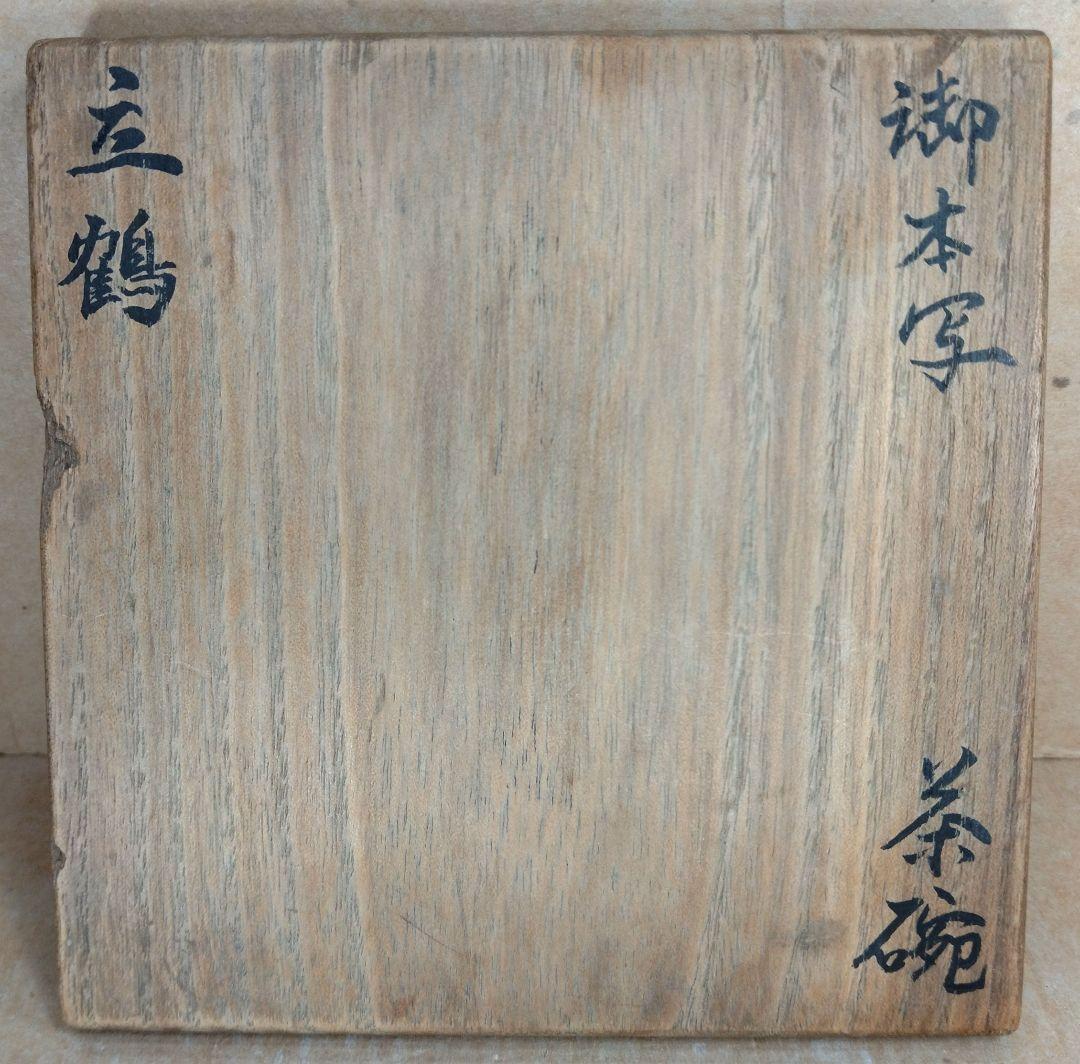 御本写
茶碗
立鶴